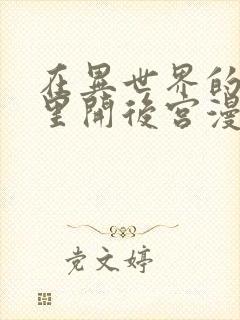 在異世界的
望開後宮漫
党文婷